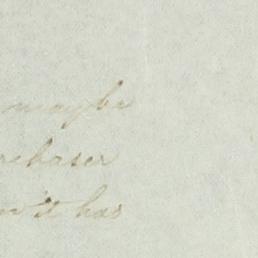 maybe
rchaser
n't has